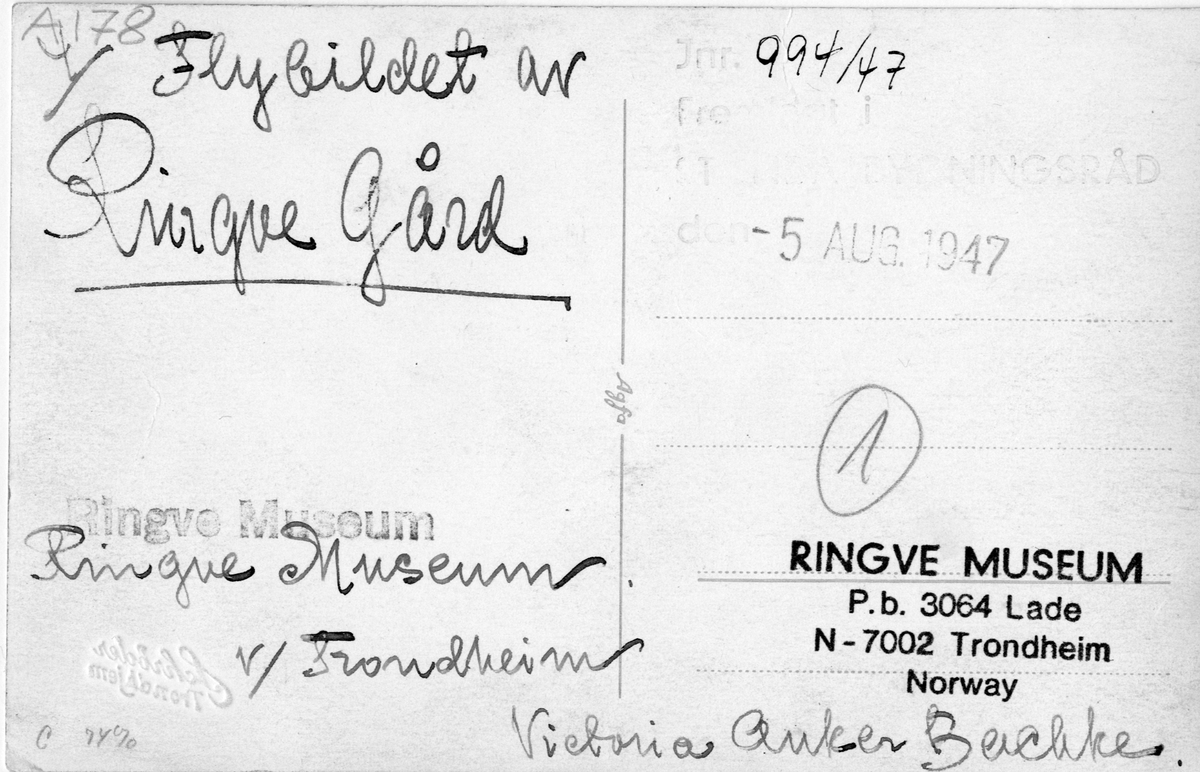 A 178
Flybildet av
Ringve Gård
Ringve Museum
Ringve Museum.
v/ Trondheim
Schrøder
Trondhjem
C
Agfa
Jnr. 994/47
i
BYGNINGSRÅD
den -5 AUG. 1947
1
RINGVE MUSEUM
P.b. 3064 Lade
N-7002 Trondheim
Norway
Victoria Anker Bachke.